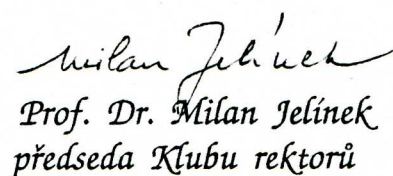 Milan Jelínek
Prof. Dr. Milan Jelínek
předseda Klubu rektorů